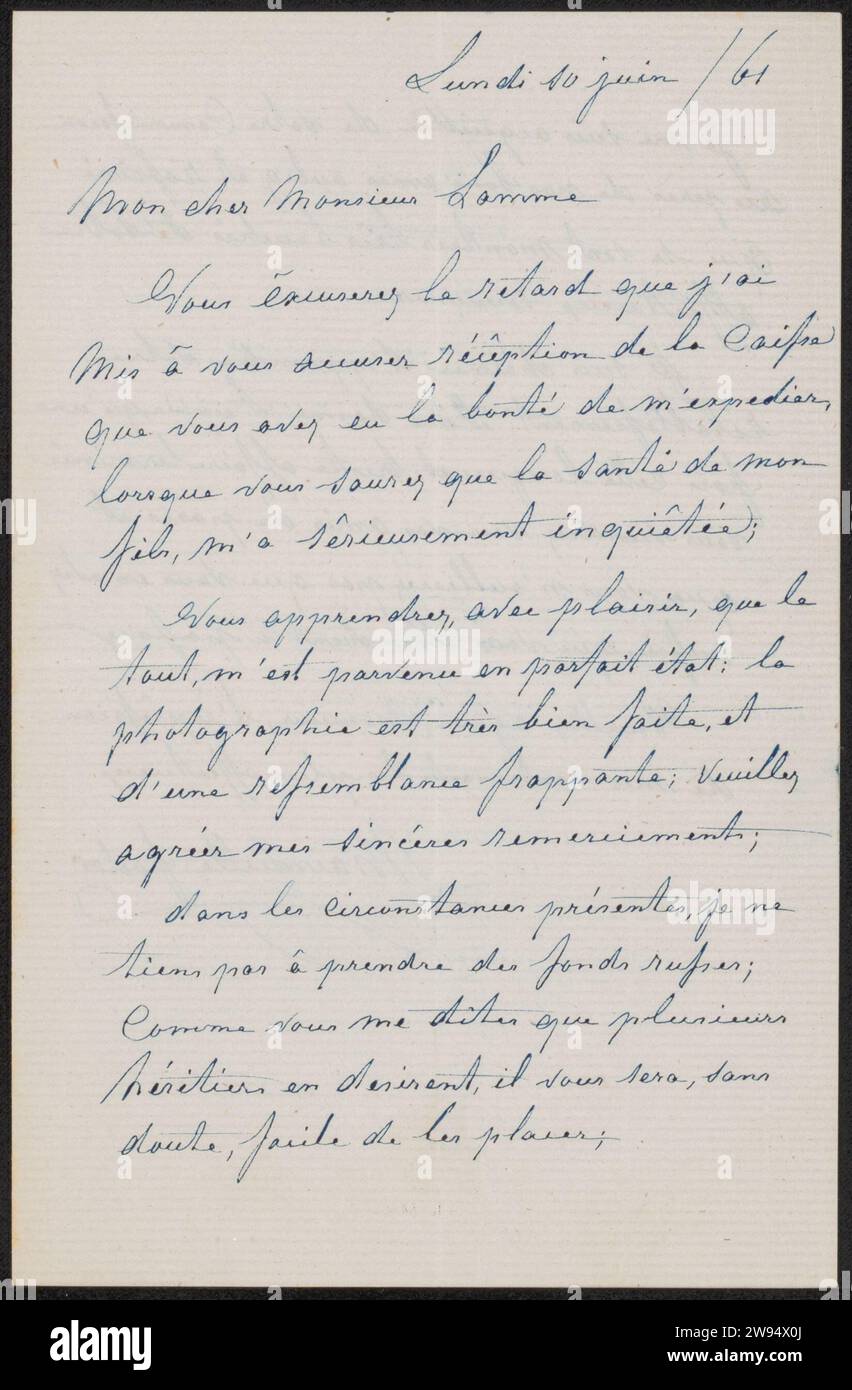 Lundi 10 juin /61
Mon cher Monsieur Lamme
Vous êxcuserez le retard que j'ai
mis â vous accuser récêption de la Caisse
que vous avez eu la bonté de m'expedier,
lorsque vous saurez que la santé de mon
fils, m'a sêrieusement inquiêtée;
Vous apprendrez, avec plaisir, que le
tout, m'est parvenu en parfait état: la
photographie est très bien faite, et
d'une ressemblance frappante; veuillez
agréer mes sincéres remerciements;
dans les circonstances présentes, je ne
tiens pas â prendre des fonds russes;
Comme vous me dites que plusieurs
héritiers en desirent, il vous sera, sans
doute, facile de les placer;
alamy
Image ID: 2W94X0J
www.alamy.com